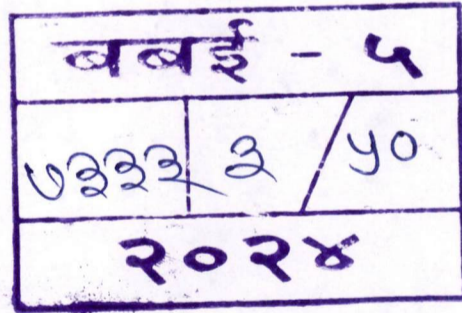 बबई - ५
७३३३ ३ / ५०
२०२४